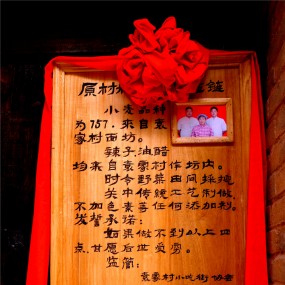 原材
链
小麦品种
为757.来自袁
家村面坊。
辣子油醋
均来自袁家村作坊内。
时令野菜田间採摘
关中传统工艺制做
不加色素等任何添加剂。
发誓承诺:
如果做不到以上四
点甘愿后世受穷。
监管:
袁家村小吃街协会